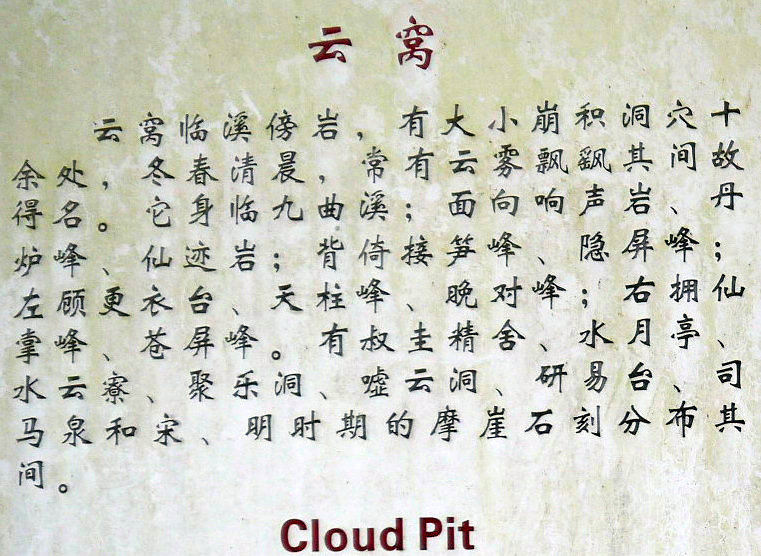 云窝
云窝临溪傍岩，有大小崩积洞穴十
余处，冬春清晨，常有云雾飘飖其间故
得名。它身临九曲溪；面向响声岩、丹
炉峰、仙迹岩；背倚接笋峰、隐屏峰；
左顾更衣台、天柱峰、晚对峰；右拥仙
掌峰、苍屏峰。有叔圭精舍、水月亭、
水云寮、聚乐洞、嘘云洞、研易台、司
马泉和宋、明时期的摩崖石刻分布其
间。
Cloud Pit